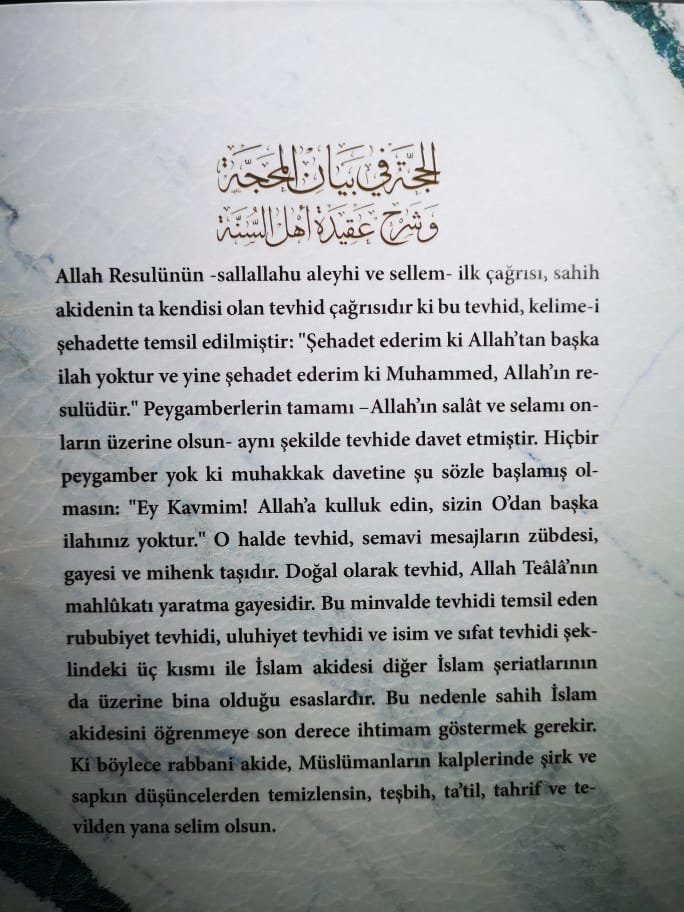 الحجَّة في بَيَان المَحَجَّة
وَشَرح عَقِيدَة أهْل السُّنَّة
Allah Resulünün -sallallahu aleyhi ve sellem- ilk çağrısı, sahih
akidenin ta kendisi olan tevhid çağrısıdır ki bu tevhid, kelime-i
şehadette temsil edilmiştir: "Şehadet ederim ki Allah’tan başka
ilah yoktur ve yine şehadet ederim ki Muhammed, Allah’ın re-
sulüdür." Peygamberlerin tamamı –Allah’ın salât ve selamı on-
ların üzerine olsun- aynı şekilde tevhide davet etmiştir. Hiçbir
peygamber yok ki muhakkak davetine şu sözle başlamış ol-
masın: "Ey Kavmim! Allah’a kulluk edin, sizin O’dan başka
ilahınız yoktur." O halde tevhid, semavi mesajların zübdesi,
gayesi ve mihenk taşıdır. Doğal olarak tevhid, Allah Teâlâ’nın
mahlûkatı yaratma gayesidir. Bu minvalde tevhidi temsil eden
rububiyet tevhidi, uluhiyet tevhidi ve isim ve sıfat tevhidi şek-
lindeki üç kısmı ile İslam akidesi diğer İslam şeriatlarının
da üzerine bina olduğu esaslardır. Bu nedenle sahih İslam
akidesini öğrenmeye son derece ihtimam göstermek gerekir.
Ki böylece rabbani akide, Müslümanların kalplerinde şirk ve
sapkın düşüncelerden temizlensin, teşbih, ta’til, tahrif ve te-
vilden yana selim olsun.